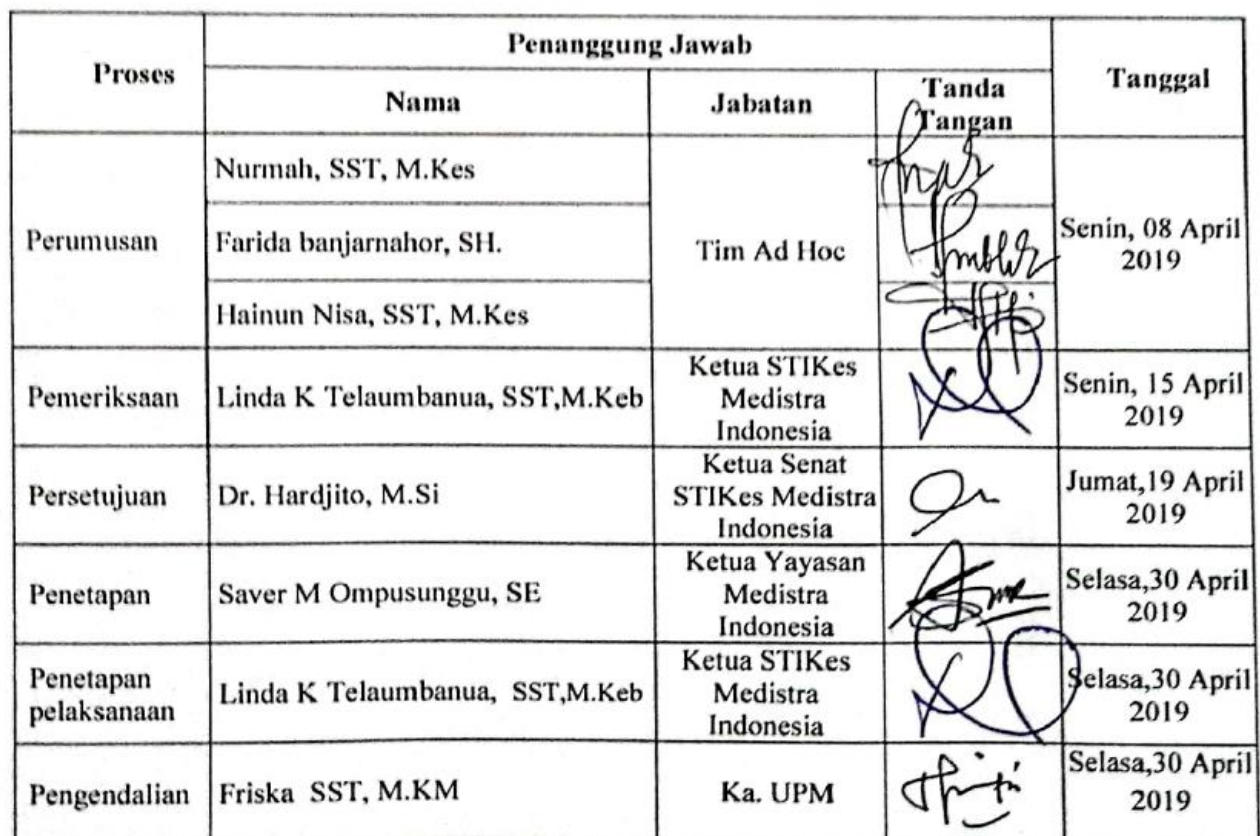 Proses
Penanggung Jawab
Tanggal
Nama
Jabatan
Tanda
Tangan
Perumusan
Nurmah, SST, M.Kes
Farida banjarnahor, SH.
Hainun Nisa, SST, M.Kes
Tim Ad Hoc
Senin, 08 April
2019
Pemeriksaan
Linda K Telaumbanua, SST,M.Keb
Ketua STIKes
Medistra
Indonesia
Senin, 15 April
2019
Persetujuan
Dr. Hardjito, M.Si
Ketua Senat
STIKes Medistra
Indonesia
Jumat,19 April
2019
Penetapan
Saver M Ompusunggu, SE
Ketua Yayasan
Medistra
Indonesia
Selasa,30 April
2019
Penetapan
pelaksanaan
Linda K Telaumbanua, SST,M.Keb
Ketua STIKes
Medistra
Indonesia
Selasa,30 April
2019
Pengendalian
Friska SST, M.KM
Ka. UPM
Selasa,30 April
2019